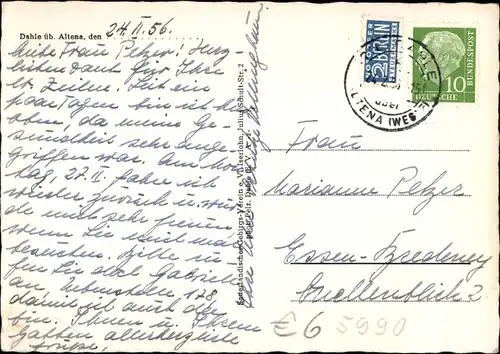 Dahle üb. Altena, den 24.II.56.
Liebe Frau Pelzer! Herz-
lichen Dank für Ihre
lb. Zeilen. Seit ein
paar Tagen bin ich hier
oben, da meine Ge-
sundheit sehr ange-
griffen war. Am Mon-
tag, 27.II. fahre ich
wieder zurück u. wür-
de mich sehr freuen
wenn Sie mich mal
besuchen. Bitte ru-
fen Sie doch
an
damit ich auch da
bin. Ihnen u. Ihrem
Gatten allerherzlichste
Grüße,
Sauerländischer Gebirgs-Verein e. V. Iserlohn, Julius-Schult-Str. 2
NOTOPFER
2 BERLIN
STEUERMARKE
10
DEUTSCHE
BUNDESPOST
DAHLE
ALTENA (WESTF)
Frau
Marianne Pelzer
Essen-Bredeney
Ruellenblick 2
€6 5990